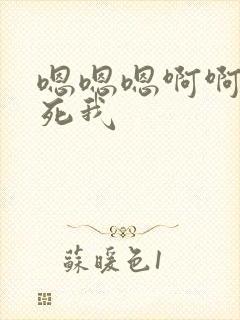 嗯嗯嗯啊啊
死我
蘇暖色1